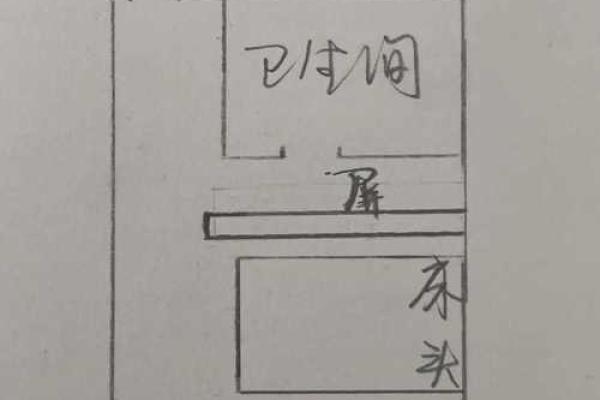 卫生间
屏
床
头